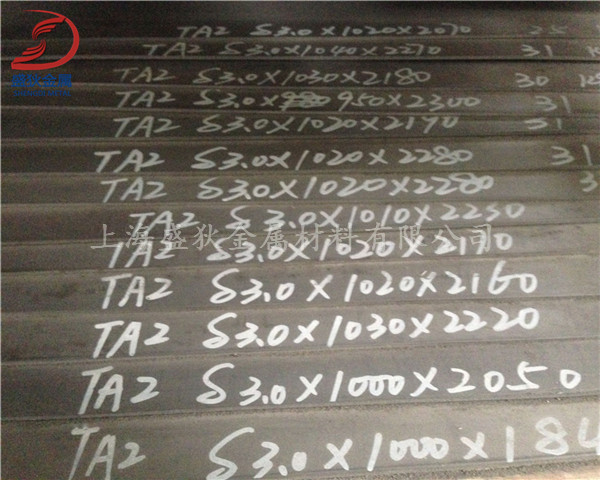 盛狄金属
TA2 δ3.0×1020×2070
TA2 δ3.0×1040×2270 31
TA2 δ3.0×1030×2180 30
TA2 δ3.0× 950×2300 31
TA2 δ3.0×1020×2190 31
TA2 δ3.0×1020×2280 31
TA2 δ3.0×1020×2280
TA2 δ3.0×1010×2250
上海盛狄金属材料有限公司
TA2 δ3.0×1020×2170
TA2 δ3.0×1020×2160
TA2 δ3.0×1030×2220
TA2 δ3.0×1000×2050
TA2 δ3.0×1000×184